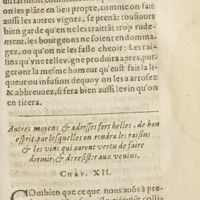 on les plāte en lieu propte, comme on fait
aussi les autres vignes, se prenāt tousiours
bien garde qu'en les traittāt trop rude-
ment, les bourgeons ne soient en domma-
gez, ou qu'on ne les fasse choir : Les rai-
sins qu'vne telle vigne produira apres, pur-
geront la mesme humeur qu'eust fait la li-
queur ou infusion dequoy on les a arrosez
& abbreuvez, si fera bien aussi le vin qu'on
en tirera.
Autres moyens & adresses fort belles, & de bon
esprit, par lesquelles on rendra les raisins
& les vins qui auront vertu de faire
dormir, & de resister aux venins.
CHAP. XII.
COmbien que ce que nous auōs à pre-